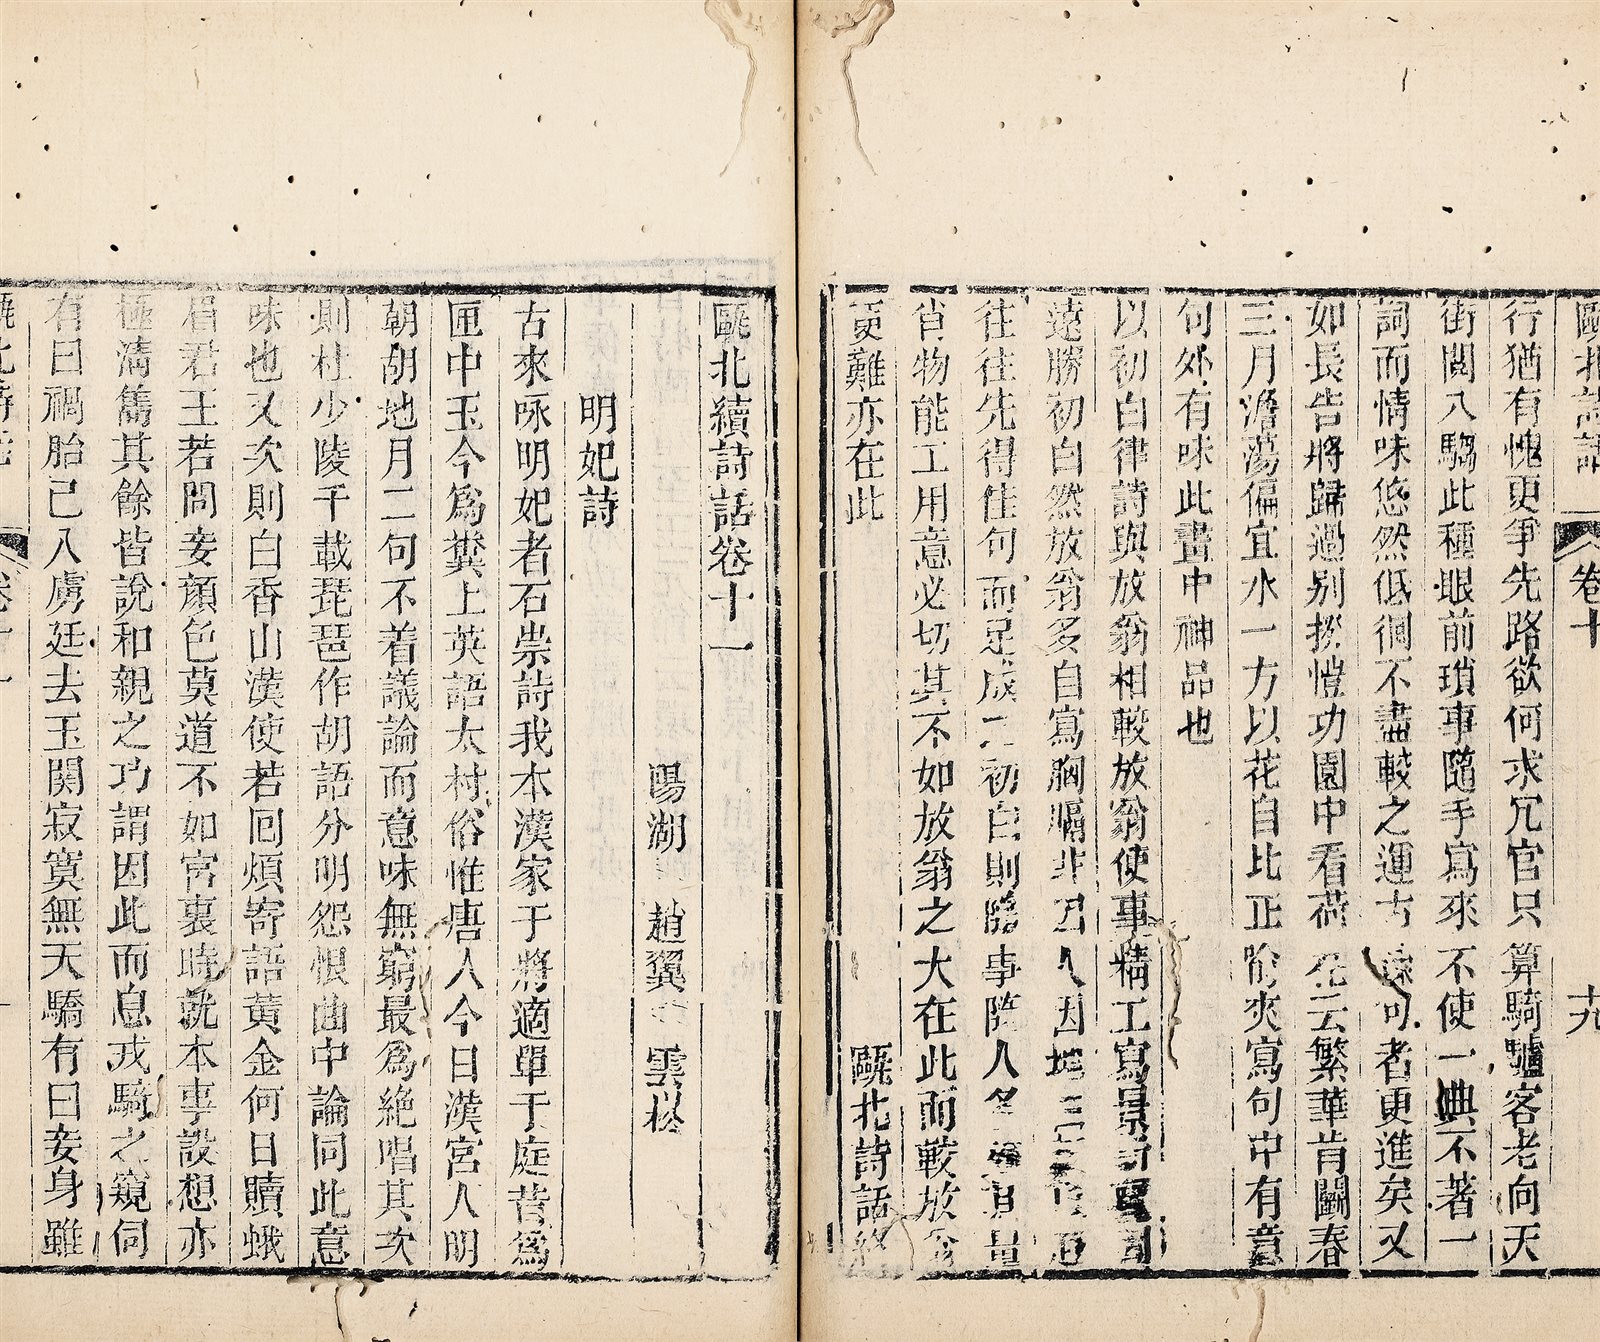 甌北詩話 卷十 十九
行猶有愧更爭先路欲何求冗官只算騎驢客老向天
街閱八騶此種眼前瑣事隨手寫來不使一典不著一
詞而情味悠然低徊不盡較之運古鍊句者更進矣又
如長告將歸過別揆愷功園中看荷花云繁華肯鬭春
三月澹蕩偏宜水一方以花自比正喻夾寫句中有意
句外有味此畫中神品也
以初白律詩與放翁相較放翁使事精工寫景新
遠勝初白然放翁多自寫胸臆非因人因地
往往先得佳句而足成之初白則隨事隨人各
肖物能工用意必切其不如放翁之大在此而較放翁
更難亦在此 甌北詩話終
甌北續詩話卷十一
陽湖 趙翼 雲崧
明妃詩
古來咏明妃者石崇詩我本漢家子將適單于庭昔爲
匣中玉今爲糞上英語太村俗惟唐人今日漢宮人明
朝胡地月二句不着議論而意味無窮最爲絶唱其次
則杜少陵千載琵琶作胡語分明怨恨曲中論同此意
味也又次則白香山漢使若回煩寄語黃金何日贖蛾
眉君王若問妾顔色莫道不如宮裏時就本事設想亦
極淸雋其餘皆說和親之功謂因此而息戎騎之窺伺
有曰禍胎已入虜廷去玉關寂寞無天驕有曰妾身雖
甌北詩話 卷十一 一